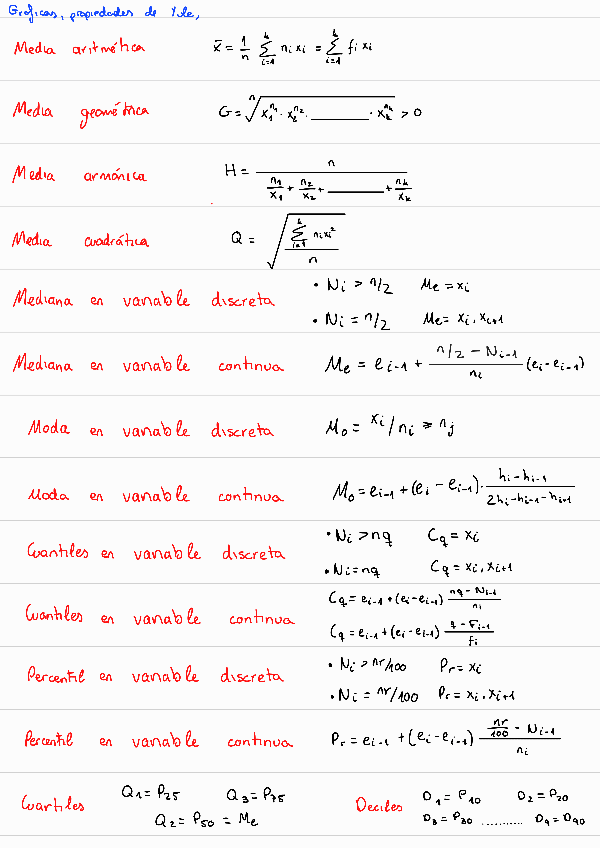 Gráficas, propiedades de Yule,
Media aritmética x̄ = 1/n ∑_{i=1}^{k} n_i x_i = ∑_{i=1}^{k} f_i x_i
Media geométrica G = ⁿ√(x_1^{n_1} · x_2^{n_2} · ______ · x_k^{n_k}) > 0
Media armónica H = n / (n_1/x_1 + n_2/x_2 + ______ + n_k/x_k)
Media cuadrática Q = √(∑_{i=1}^{k} n_i x_i² / n)
Mediana en variable discreta • N_i > n/2 Me = x_i
• N_i = n/2 Me = x_i, x_{i+1}
Mediana en variable continua Me = e_{i-1} + (n/2 - N_{i-1})/n_i (e_i - e_{i-1})
Moda en variable discreta M_o = x_i / n_i ≥ n_j
Moda en variable continua M_o = e_{i-1} + (e_i - e_{i-1}) · (h_i - h_{i-1})/(2h_i - h_{i-1} - h_{i+1})
Cuantiles en variable discreta • N_i > nq C_q = x_i
• N_i = nq C_q = x_i, x_{i+1}
Cuantiles en variable continua C_q = e_{i-1} + (e_i - e_{i-1}) (nq - N_{i-1})/n_i
C_q = e_{i-1} + (e_i - e_{i-1}) (q - F_{i-1})/f_i
Percentil en variable discreta • N_i > nr/100 P_r = x_i
• N_i = nr/100 P_r = x_i, x_{i+1}
Percentil en variable continua P_r = e_{i-1} + (e_i - e_{i-1}) (nr/100 - N_{i-1})/n_i
Cuartiles Q_1 = P_25 Q_3 = P_75
Q_2 = P_50 = Me
Deciles D_1 = P_10 D_2 = P_20
D_3 = P_30 .......... D_9 = D_90